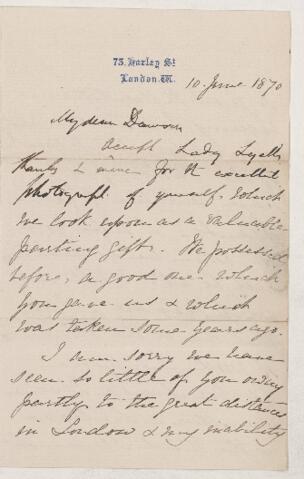 73, Harley St
London. W.
10 June 1870
My dear Dawson
Accept Lady Lyell's
thanks & mine for the excellent
photograph of yourself, which
we look upon as a valuable
parting gift. We possessed
before, a good one which
you gave us & which
was taken some years ago.
I am sorry we have
seen so little of you owing
partly to the great distances
in London & my inability